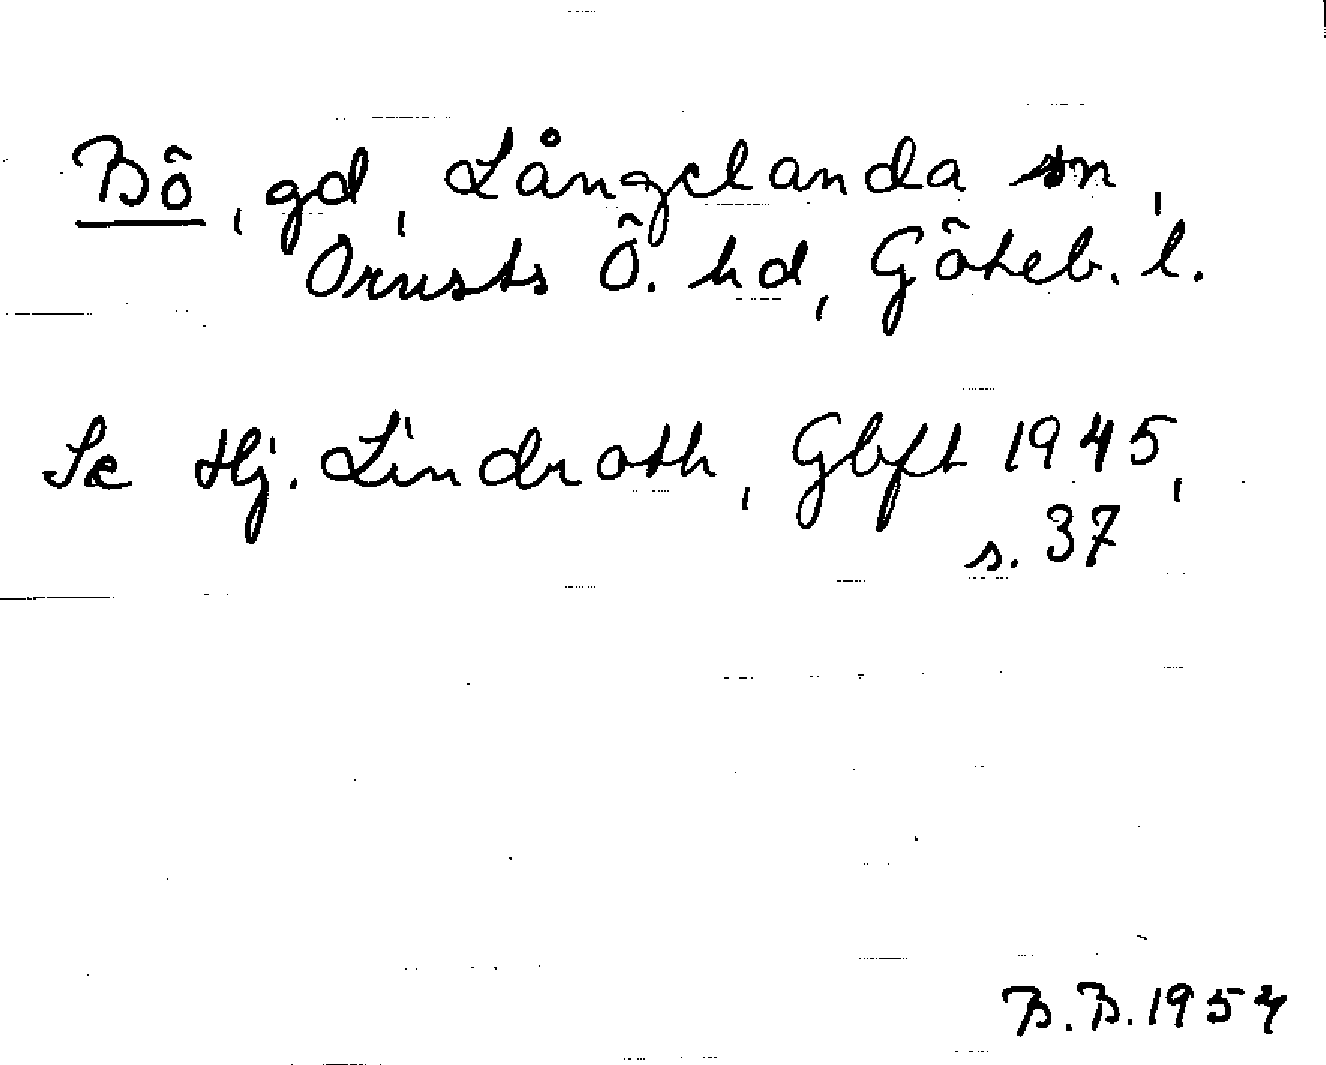 Bö, gd, Långelanda sn,
Orusts Ö. hd, Göteb. l.
Se Hj. Lindroth, Gbft 1945,
s. 37
B.B. 1954